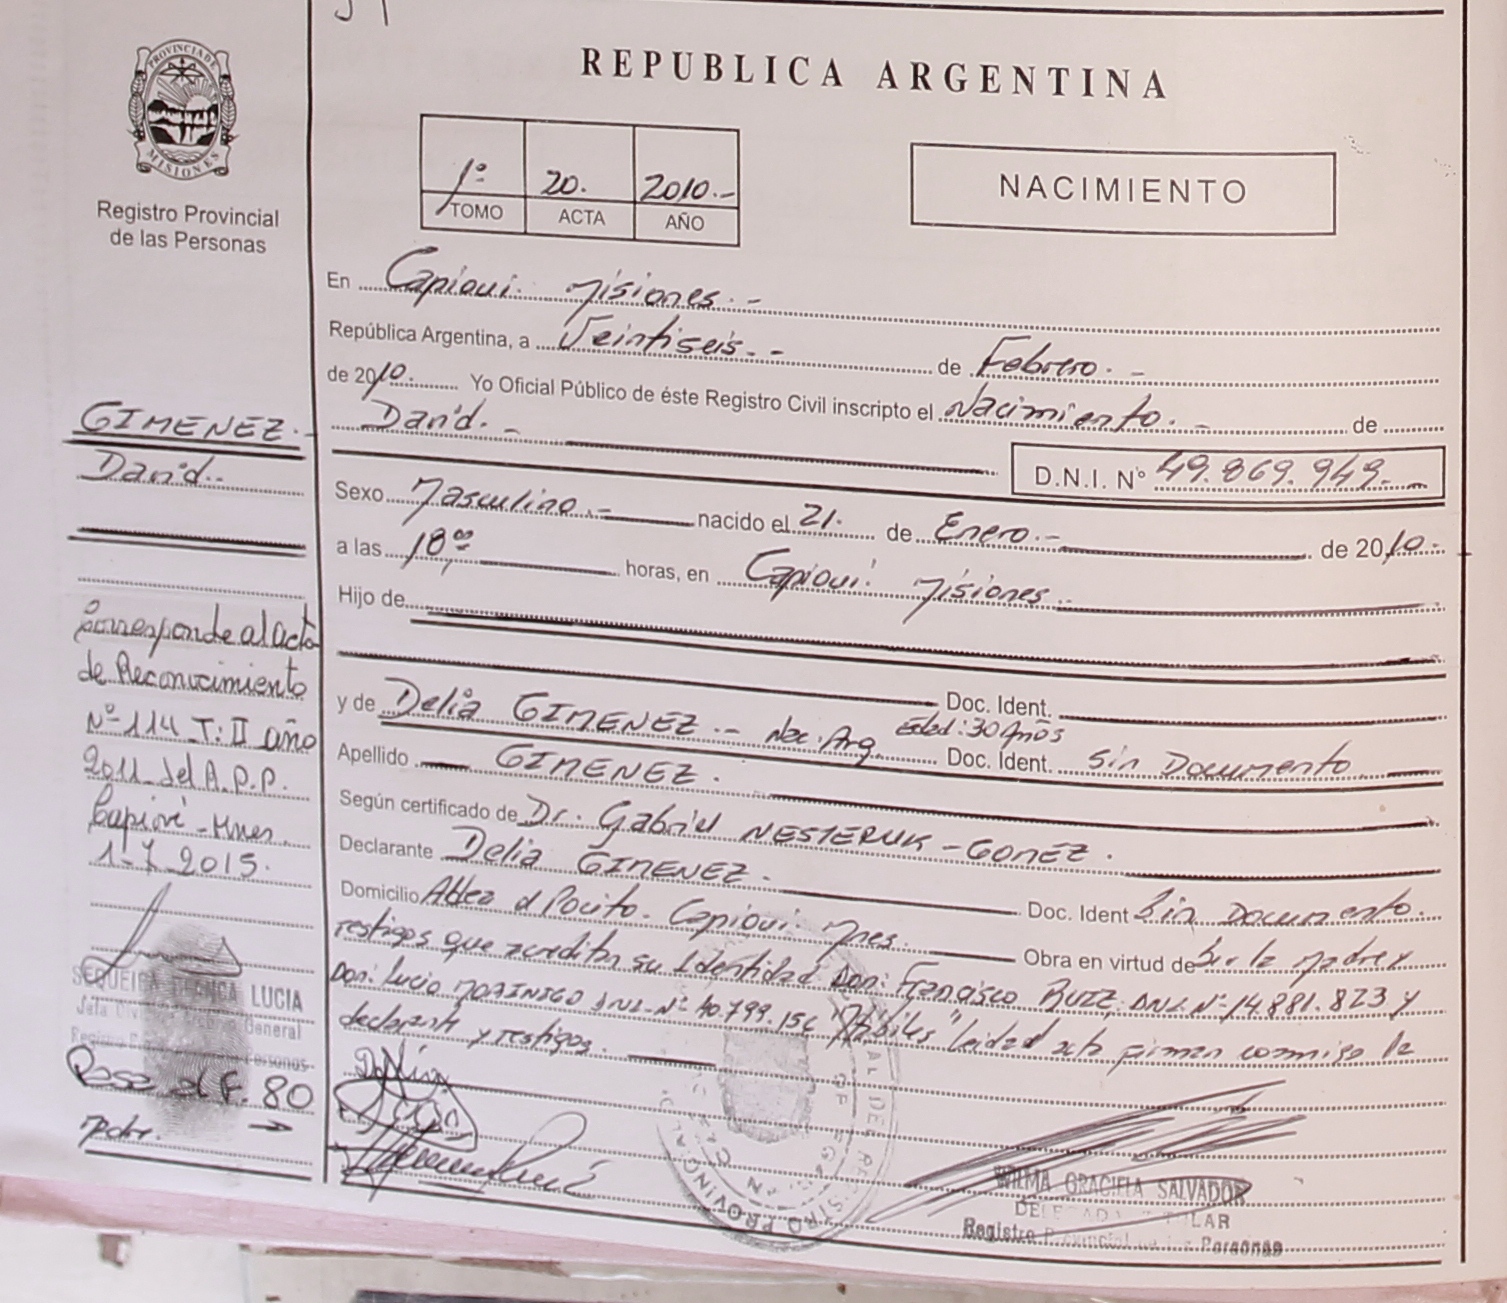 PROVINCIA DE
MISIONES
Registro Provincial
de las Personas
GIMENEZ.-
David.-
Corresponde al acta
de Reconocimiento
Nº 114 T: II año
2011 del A.P.P.
Capioví - Mnes.
1-7-2015.
SEQUEIRA BLANCA LUCIA
General
Registro Personas
Pasa al F. 80
REPUBLICA ARGENTINA
1º 20. 2010.-
TOMO ACTA AÑO
NACIMIENTO
En Capiovi. Misiones.-
República Argentina, a Veintiseis.- de Febrero.-
de 2010. Yo Oficial Público de éste Registro Civil inscripto el Nacimiento.- de
David.-
D.N.I. Nº 49.869.949.-
Sexo Masculino.- nacido el 21. de Enero.- de 2010.-
a las 18ºº horas, en Capiovi. Misiones
Hijo de
Doc. Ident.
y de Delia GIMENEZ.- Nac. Arg. Edad: 30 Años Doc. Ident. Sin Documento
Apellido GIMENEZ.
Según certificado de Dr. Gabriel NESTERUK - GOMEZ.
Declarante Delia GIMENEZ. Doc. Ident Sin Documento.
Domicilio Aldea el Pocito. Capiovi Mnes. Obra en virtud de Ser la madre y
testigos que acreditan su Identidad Don: Francisco RUIZ, DNI. Nº 14.881.823 y
Don: Lucio MORINIGO DNI. Nº 40.799.156 "Hábiles" Leida el acta firman conmigo la
declarante y testigos.
WILMA GRACIELA SALVADOR
DELEGADA TITULAR
Registro Provincial de las Personas